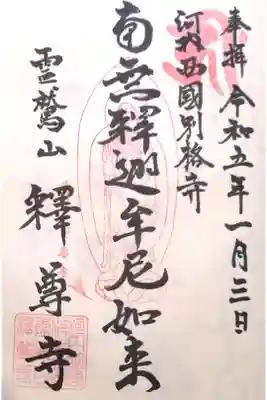 奉拝 令和五年一月三日
河内西國別格寺
南無釋迦牟尼如来
霊鷲山 釋尊寺